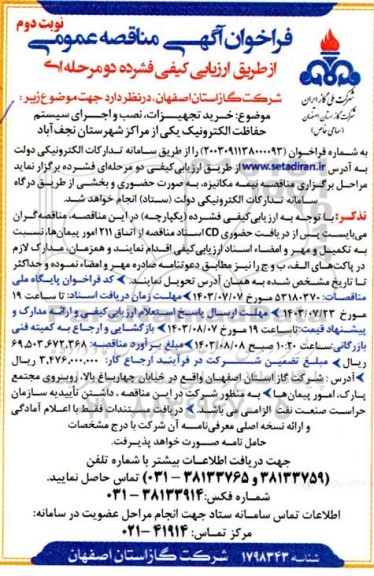 نوبت دوم
فراخوان آگهی مناقصه عمومی
از طریق ارزیابی کیفی فشرده دو مرحله ای
شرکت ملی گاز ایران
شرکت گاز استان اصفهان
(سهامی خاص)
شرکت گاز استان اصفهان، در نظر دارد جهت موضوع زیر:
موضوع: خرید تجهیزات، نصب و اجرای سیستم
حفاظت الکترونیک یکی از مراکز شهرستان نجف آباد
به شماره فراخوان (۲۰۰۳۰۹۱۱۳۸۰۰۰۰۹۲) را از طریق سامانه تدارکات الکترونیکی دولت
به آدرس www.setadiran.ir از طریق ارزیابی کیفی دو مرحله‌ای فشرده برگزار نماید
مراحل برگزاری مناقصه نیمه مکانیزه، به صورت حضوری و بخشی از طریق درگاه
سامانه تدارکات الکترونیکی دولت (ستاد) انجام خواهد شد.
تذکر: با توجه به ارزیابی کیفی فشرده (یکپارچه) در این مناقصه، مناقصه‌گران
می‌بایست پس از دریافت حضوری CD اسناد مناقصه از اتاق ۲۱۱ امور پیمان‌ها، نسبت
به تکمیل و مهر و امضاء اسناد ارزیابی کیفی اقدام نمایند و همزمان، مدارک لازم
در پاکت‌های الف، ب و ج را نیز مطابق دعوتنامه صادره مهر و امضاء نموده و حداکثر
تا تاریخ مشخص شده به همان آدرس تحویل نمایند. کد فراخوان پایگاه ملی
مناقصات: ۵۳۱۸۰۳۷۰ مورخ ۱۴۰۳/۰۷/۰۷ مهلت زمان دریافت اسناد: تا ساعت ۱۹
مورخ ۱۴۰۳/۰۷/۲۳ مهلت ارسال پاسخ استعلام ارزیابی کیفی و ارائه مدارک و
پیشنهاد قیمت: تا ساعت ۱۹ مورخ ۱۴۰۳/۰۸/۰۷ بازگشایی و ارجاع به کمیته فنی
بازرگانی: ساعت ۱۰:۲۰ صبح ۱۴۰۳/۰۸/۰۸ مبلغ برآورد مناقصه: ۶۹,۵۰۳,۶۷۲,۳۶۸
ریال مبلغ تضمین شرکت در فرآیند ارجاع کار: ۳,۴۷۶,۰۰۰,۰۰۰ ریال
آدرس: شرکت گاز استان اصفهان واقع در خیابان چهارباغ بالا، روبروی مجتمع
پارک، امور پیمان‌ها به منظور شرکت در این مناقصه، داشتن تأییدیه سازمان
حراست صنعت نفت الزامی می باشد. دریافت مستندات فقط با اعلام آمادگی
و ارائه نسخه اصلی معرفی‌نامه آن شرکت با درج مشخصات
حامل نامه صورت خواهد پذیرفت.
جهت دریافت اطلاعات بیشتر با شماره تلفن
(۳۸۱۳۳۷۵۹ و ۳۸۱۳۳۷۶۵ – ۰۳۱) تماس حاصل نمایید.
شماره فکس: ۳۸۱۳۳۹۱۴ – ۰۳۱
اطلاعات تماس سامانه ستاد جهت انجام مراحل عضویت در سامانه:
مرکز تماس: ۴۱۹۱۴ – ۰۲۱
شناسه ۱۷۹۸۳۴۳
شرکت گاز استان اصفهان